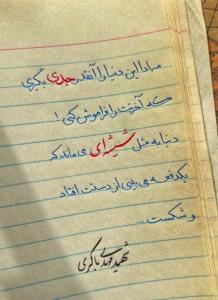 مبادا این دنیا را آنقدر جدی بگیری
که آخرتت را فراموش کنی!
دنیا به مثل شیشه‌ای می‌ماند که
یکدفعه می‌بینی از دستت افتاد
و شکست...
شهید مهدی باکری